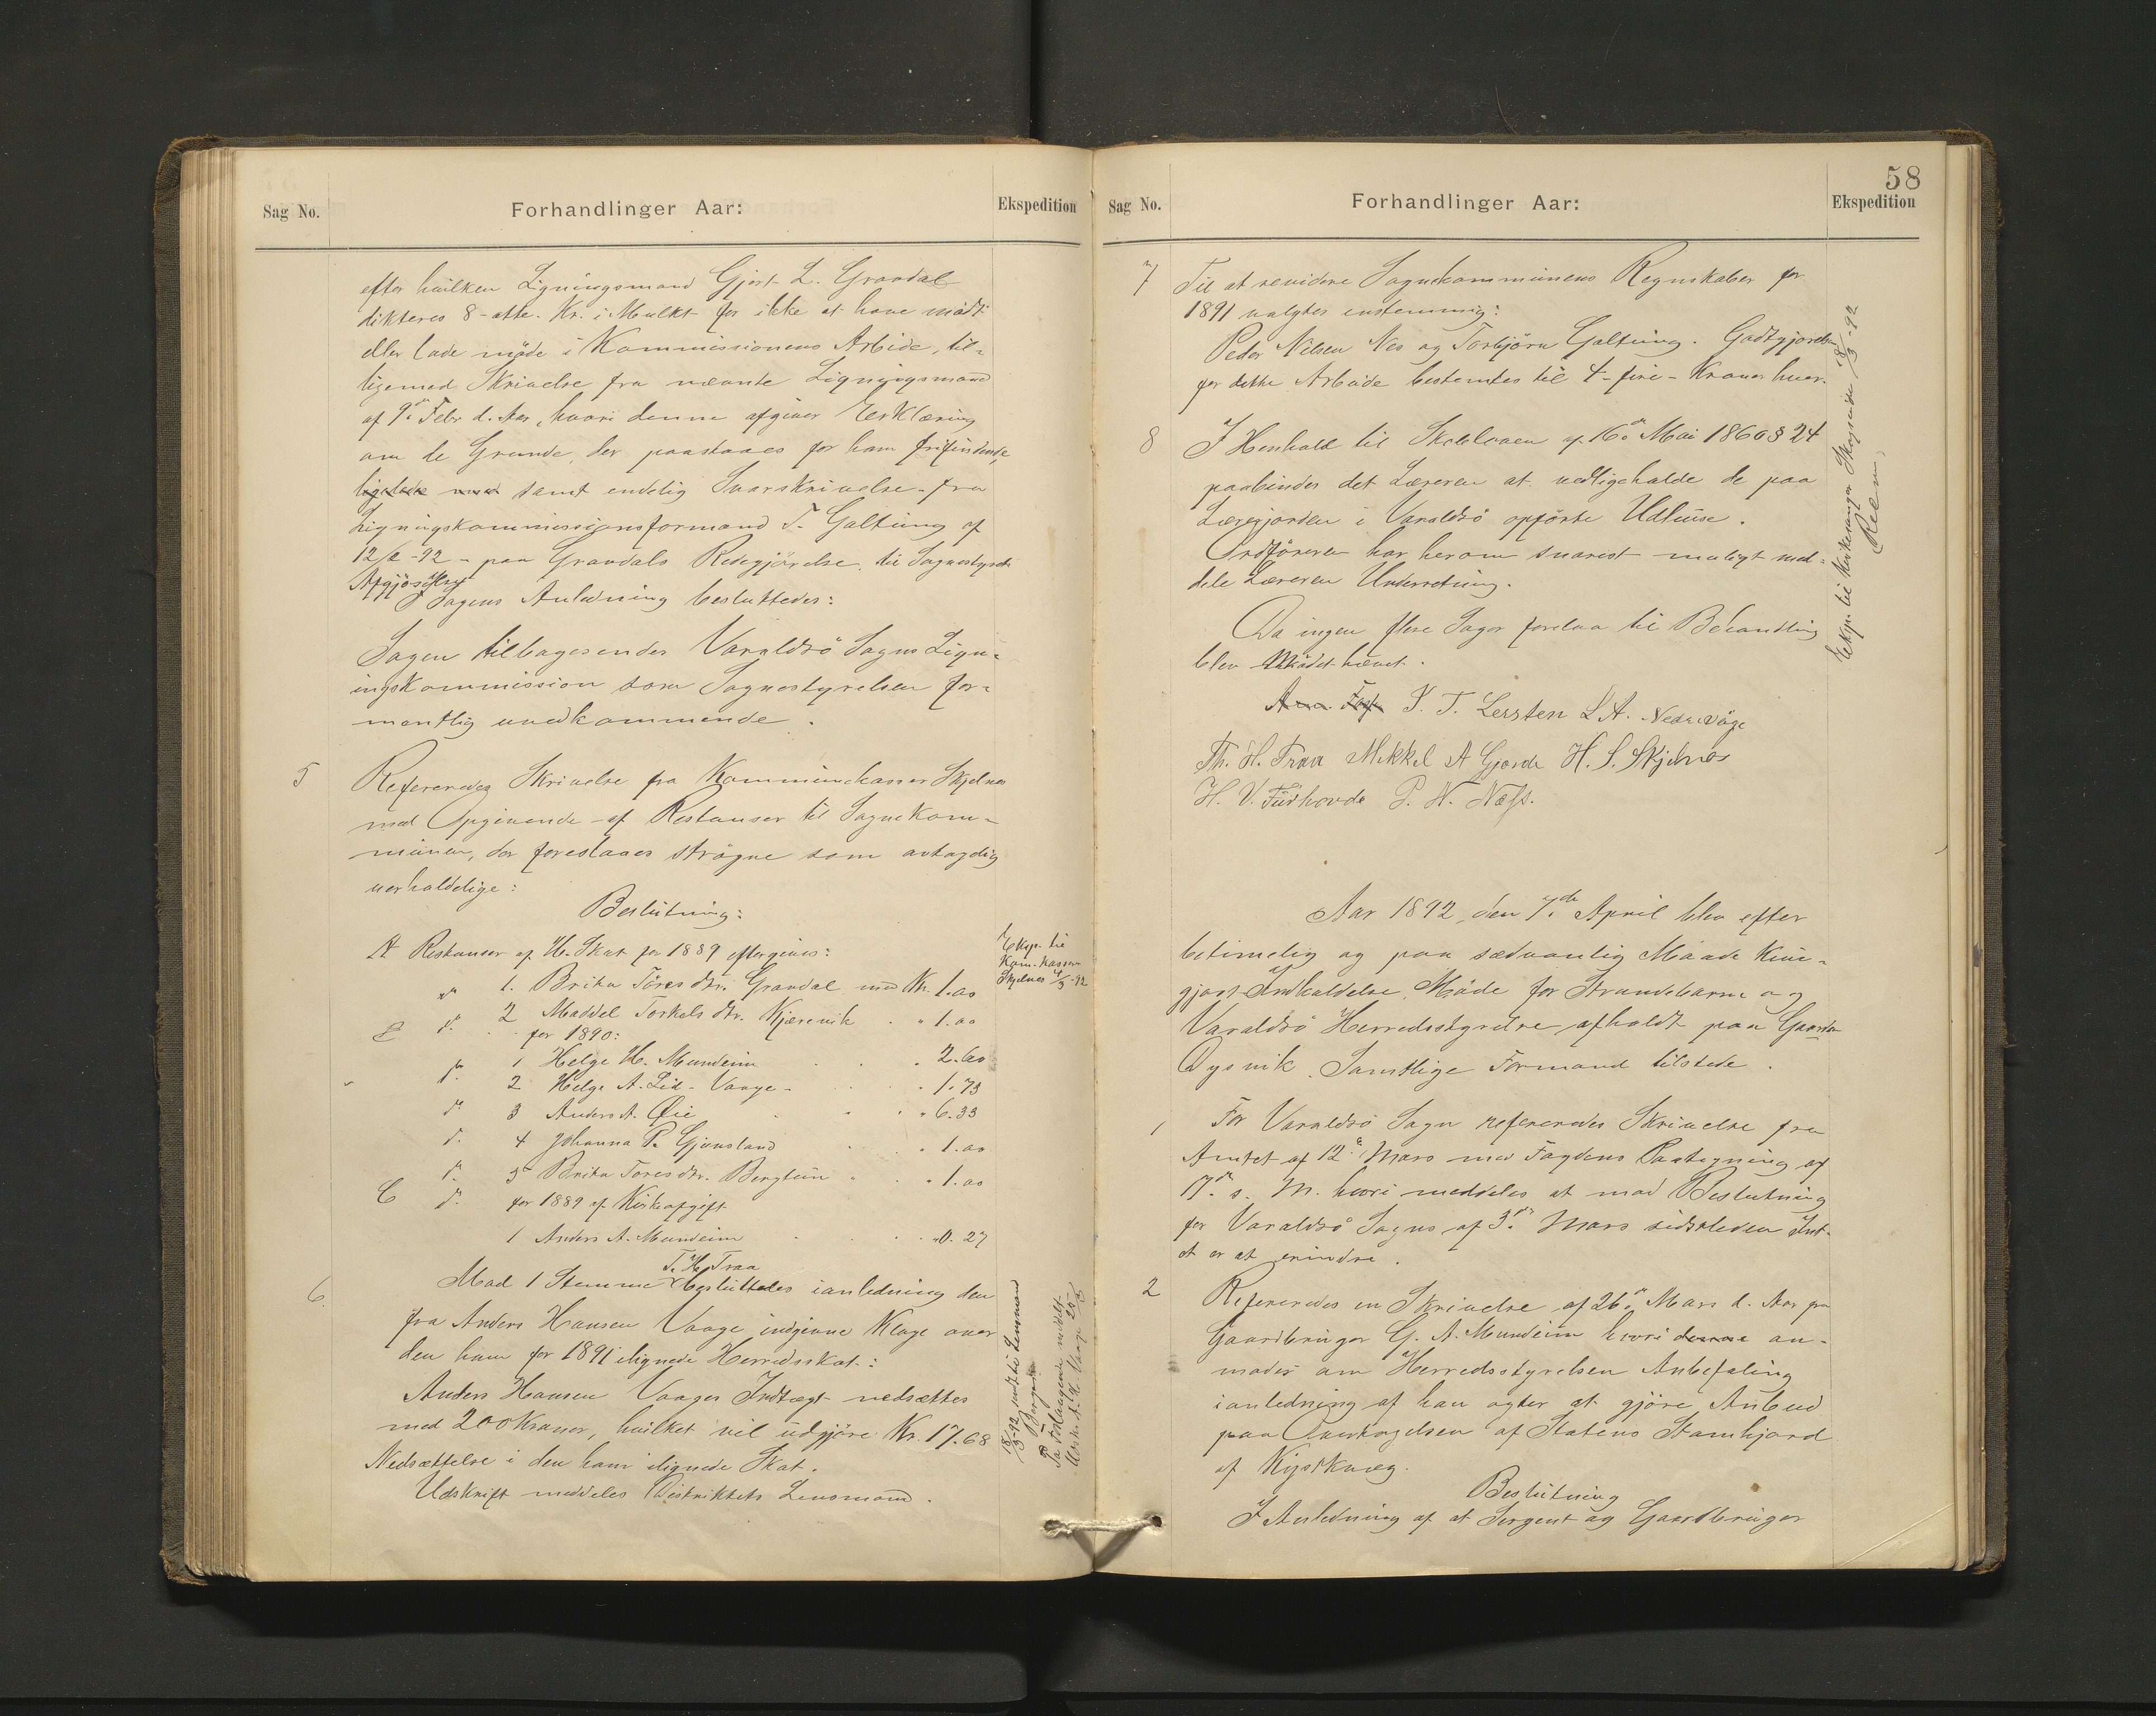 Sag No.
Forhandlinger Aar:
Ekspedition
efter hvilken Ligningsmand Gjert L. Gravdal
dikteres 8 - otte. Kr. i Mulkt for ikke at have mödt
eller lade möde i Kommissionens Arbide, til-
ligemed Skrivelse fra nævnte Ligningsmand
af 9de Febr d. Aar, hvori denne afgiver Erklæring
om de Grunde, der paastaaes for ham frifindende,
ligeledes med samt endelig Svarskrivelse fra
Ligningskommissionsformand T. Galtung af
12/2 -92 - paa Gravdals Redegjörelse, til Sognestyrets
Afgjörelse
I Sagens Anledning besluttedes:
Sagen tilbagesendes Varaldsö Sogns Lign-
ingskommission som Sognestyrelsen for-
mentlig uvedkommende.
5 Refereredes Skrivelse fra Kommunekasser Skjelnes
med Opgivende af Restanser til Sognekom-
munen, der foreslaaes strögne som
uerholdelige:
Beslutning:
A Restanser af H. Skat for 1889 eftergives:
1. Brita Töres dtr. Gravdal med Kr. 1.00
2 Maddel Torkels dtr. Kjærevik " 1.00
B do for 1890:
1 Helge H. Mundeim " 2.60
2 Helge A. Lid - Vaage - " 1.73
do 3 Anders A. Øie " 6.33
do 4 Johanna P. Gjønsland " 1.00
do 5 Brita Tores dtr. Bergtun " 1.00
C do for 1889 af Kirkeafgift
1 Anders A. Mundeim " 0.27
Eksp. til
Kom. kasserer
Skjelnes 4/3 -92
T. H. Traa
6. Mod 1 Stemme x besluttedes ianledning den
fra Anders Hansen Vaage indgivne Klage over
den ham for 1891 ilignede Herredsskat:
Anders Hansen Vaages Indtægt nedsættes
med 200 Kroner, hvilket vil udgjöre Kr. 17.68
Nedsættelse i den ham ilignede Skat.
Udskrift meddeles Distriktets Lensmand.
18/3 -92 sendt til Lensmand
Paa Forlangende meddelt
58
Sag No.
Forhandlinger Aar:
Ekspedition
7 Til at revidere Sognekommunens Regnskaber for
1891 valgtes enstemmig:
Peder Nilsen Nes og Torbjörn Galtung. Godtgjørelsen
for dette Arbeide bestemtes til 4 - fire - Kroner hver.
8 I Henhold til Skoleloven af 16de Mai 1860 § 24
paabindes det Læreren at vedligeholde de paa
Lærerjorden i Varaldsö opförte Udhuse.
Ordföreren har herom snarest muligt med-
dele Læreren Underretning.
Da ingen flere Sager forelaa til Behandling
blev Mödet hævet.
T. Lersten L. A. Nedrevåge
Th. H. Traa Mikkel A Gjerde H. S. Skjelnes
H. V. Tudhovde P. N. Næss.
Eksp. til Kirkesanger Skogseide 18/3 -92
Aar 1892, den 7de April blev efter
betimelig og paa sædvanlig Maade kund-
gjort Indkaldelse, Möde for Strandebarm og
Varaldsö Herredsstyrelse afholdt paa Gaarden
Oysvik. Samtlige Formænd tilstede.
1 For Varaldsö Sogn refereredes Skrivelse fra
Amtet af 12te Mars med Fogdens Paategning af
17de s. M. hvori meddeles at mod Beslutning
for Varaldsö Sogns af 3die Mars sidstleden Int-
et er at erindre.
2 Refereredes en Skrivelse af 26de Mars d. Aar fra
Gaardbruger G. A. Mundeim hvori denne an-
modes om Herredsstyrelsen Anbefaling
ianledning af han agter at gjöre Anbud
paa Overtagelsen af Statens Stamhjord
af Kystkvæg.
Beslutning
I Anledning af at Sergent og Gaardbruger